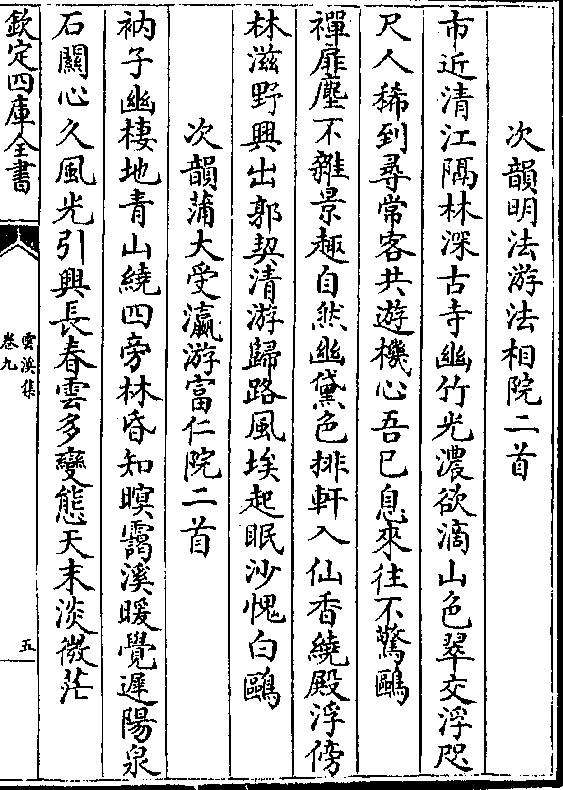 次韻明法游法相院二首
市近清江隔林深古寺幽竹光濃欲滴山色翠交浮咫
尺人稀到尋常客共遊機心吾已息來往不驚鷗
禪扉塵不雜景趣自然幽黛色排軒入仙香繞殿浮傍
林滋野興出郭契清游歸路風埃起眠沙愧白鷗
次韻蒲大受瀛游富仁院二首
衲子幽棲地青山繞四旁林昏知暝靄溪暖覺遲陽泉
石關心久風光引興長春雲多變態天末淡微茫
欽定四庫全書
雲溪集
卷九
五